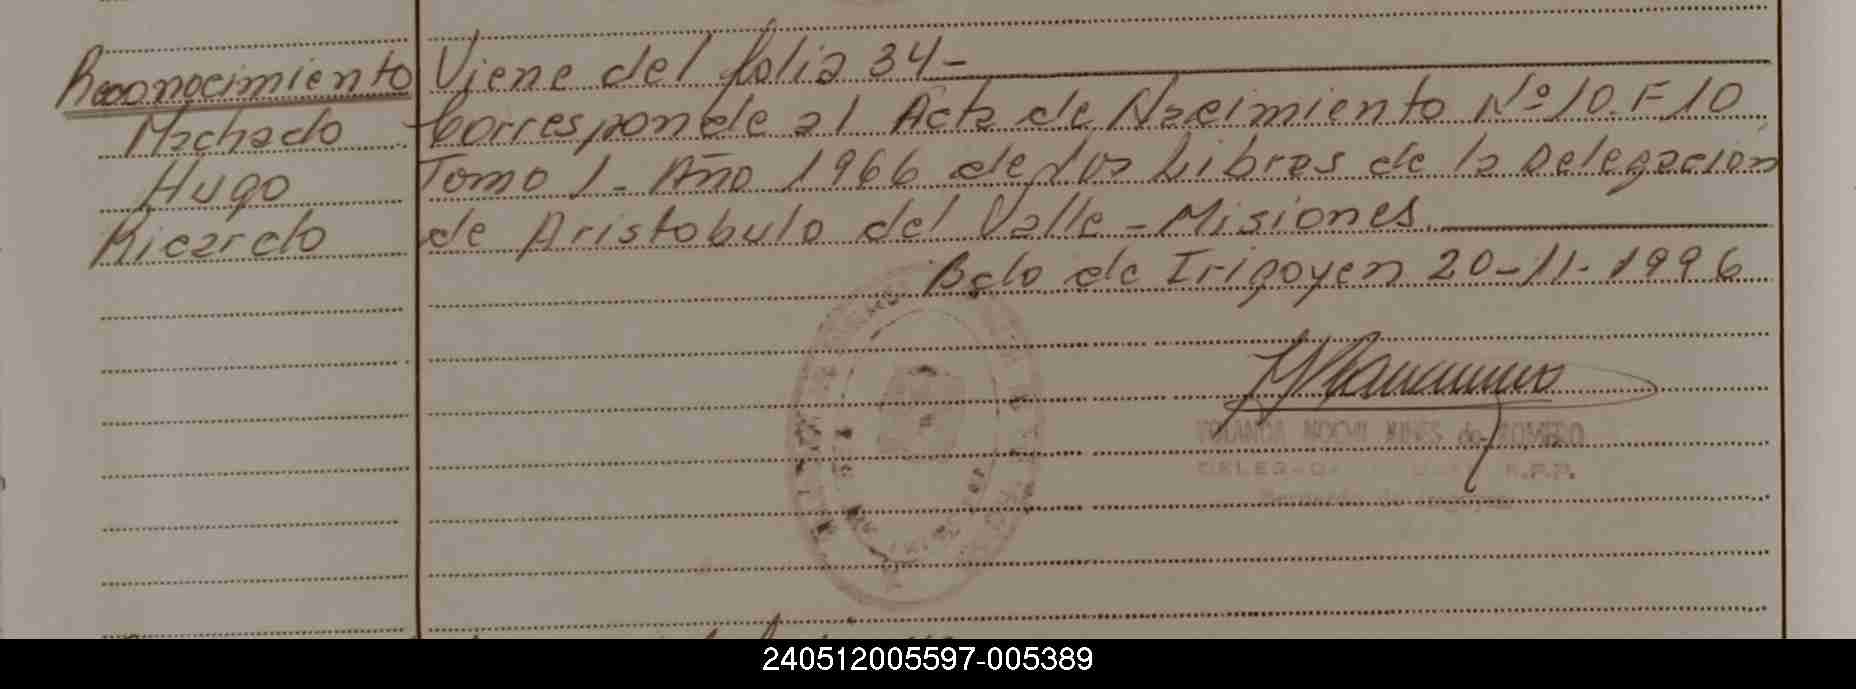 Reconocimiento
Machado
Hugo
Ricardo
Viene del folio 34-
Corresponde al Acta de Nacimiento Nº 10. F 10
Tomo 1- Año 1966 de los Libros de la Delegación
de Aristobulo del Valle - Misiones.
Bdo de Irigoyen 20-11-1996
YOLANDA NOEMI NUNES de ROMERO
R.P.P.
Bernardo de Irigoyen
240512005597-005389